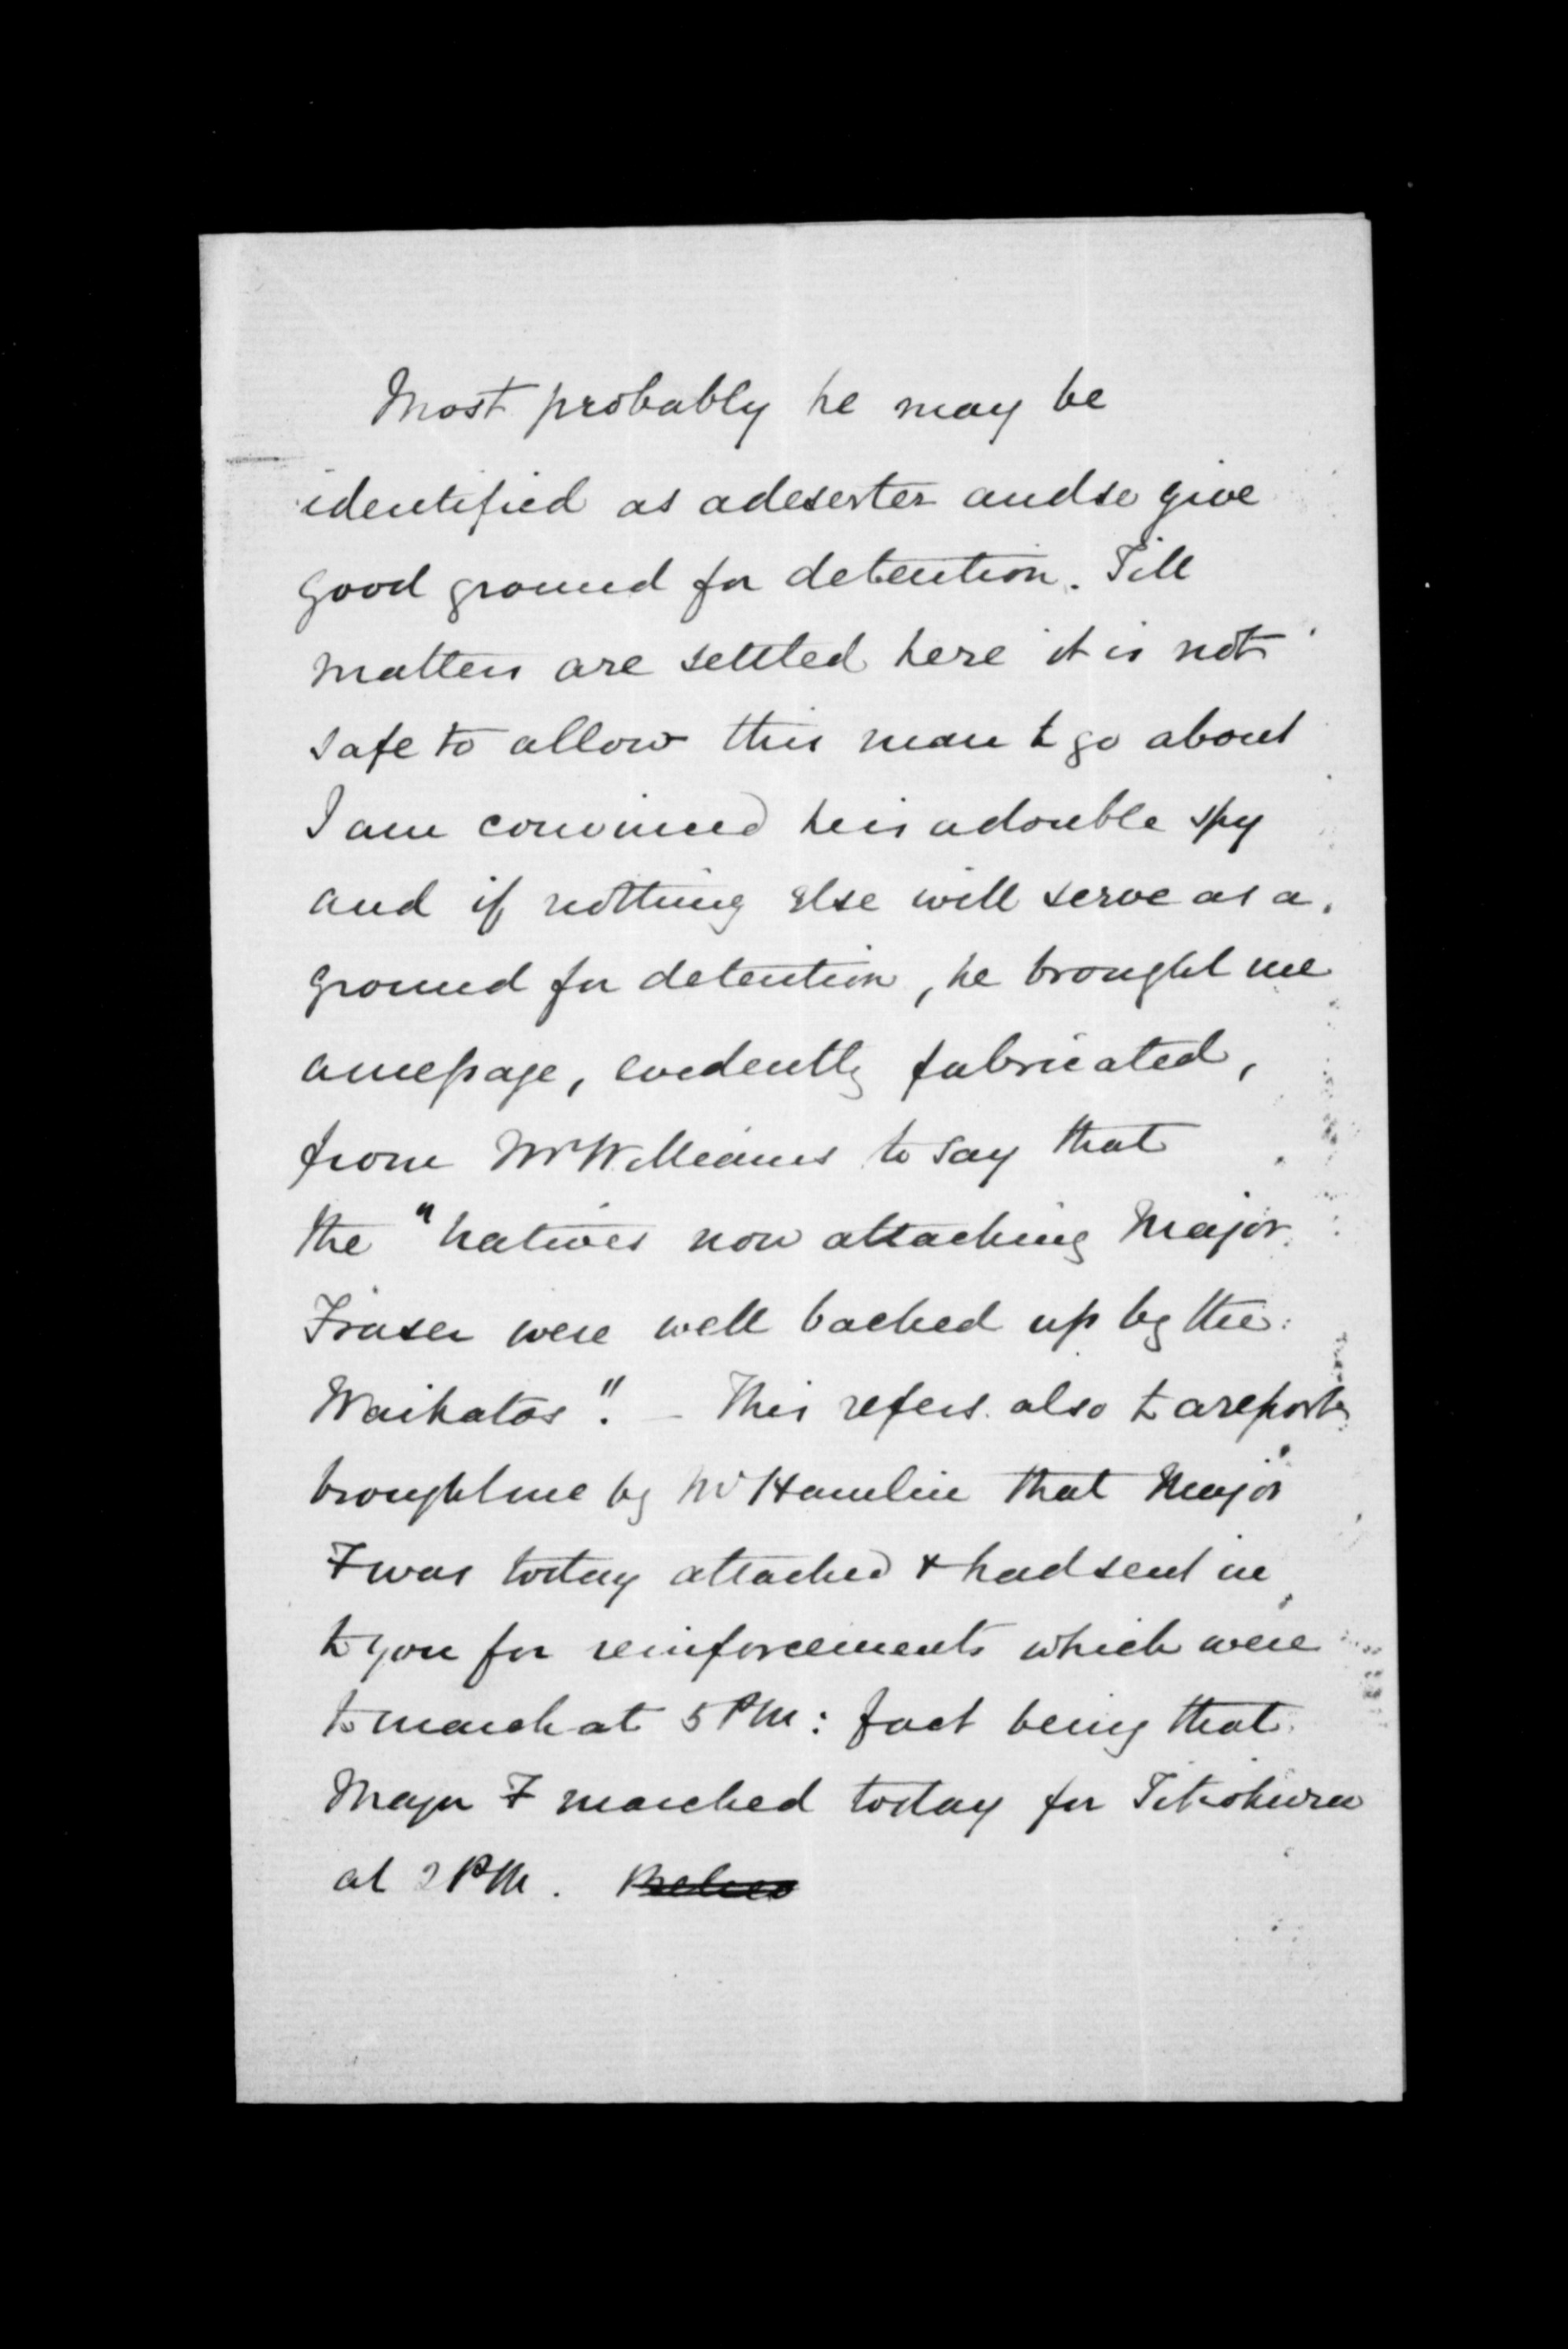 Most probably he may be
identified as a deserter and so give
good ground for detention. Till
matters are settled here it is not
safe to allow this man to go about
I am convinced he is a double spy
and if nothing else will serve as a
ground for detention, he brought me
a message, evidently fabricated,
from Mr Williams to say that
the "natives now attacking Major
Fraser were well backed up by the
Waikatos". — This refers also to a report
brought me by Mr Hamlin that Major
F was today attacked & had sent in
to you for reinforcements which were
to march at 5 PM: fact being that
Major F marched today for Titiokura
at 2 PM.